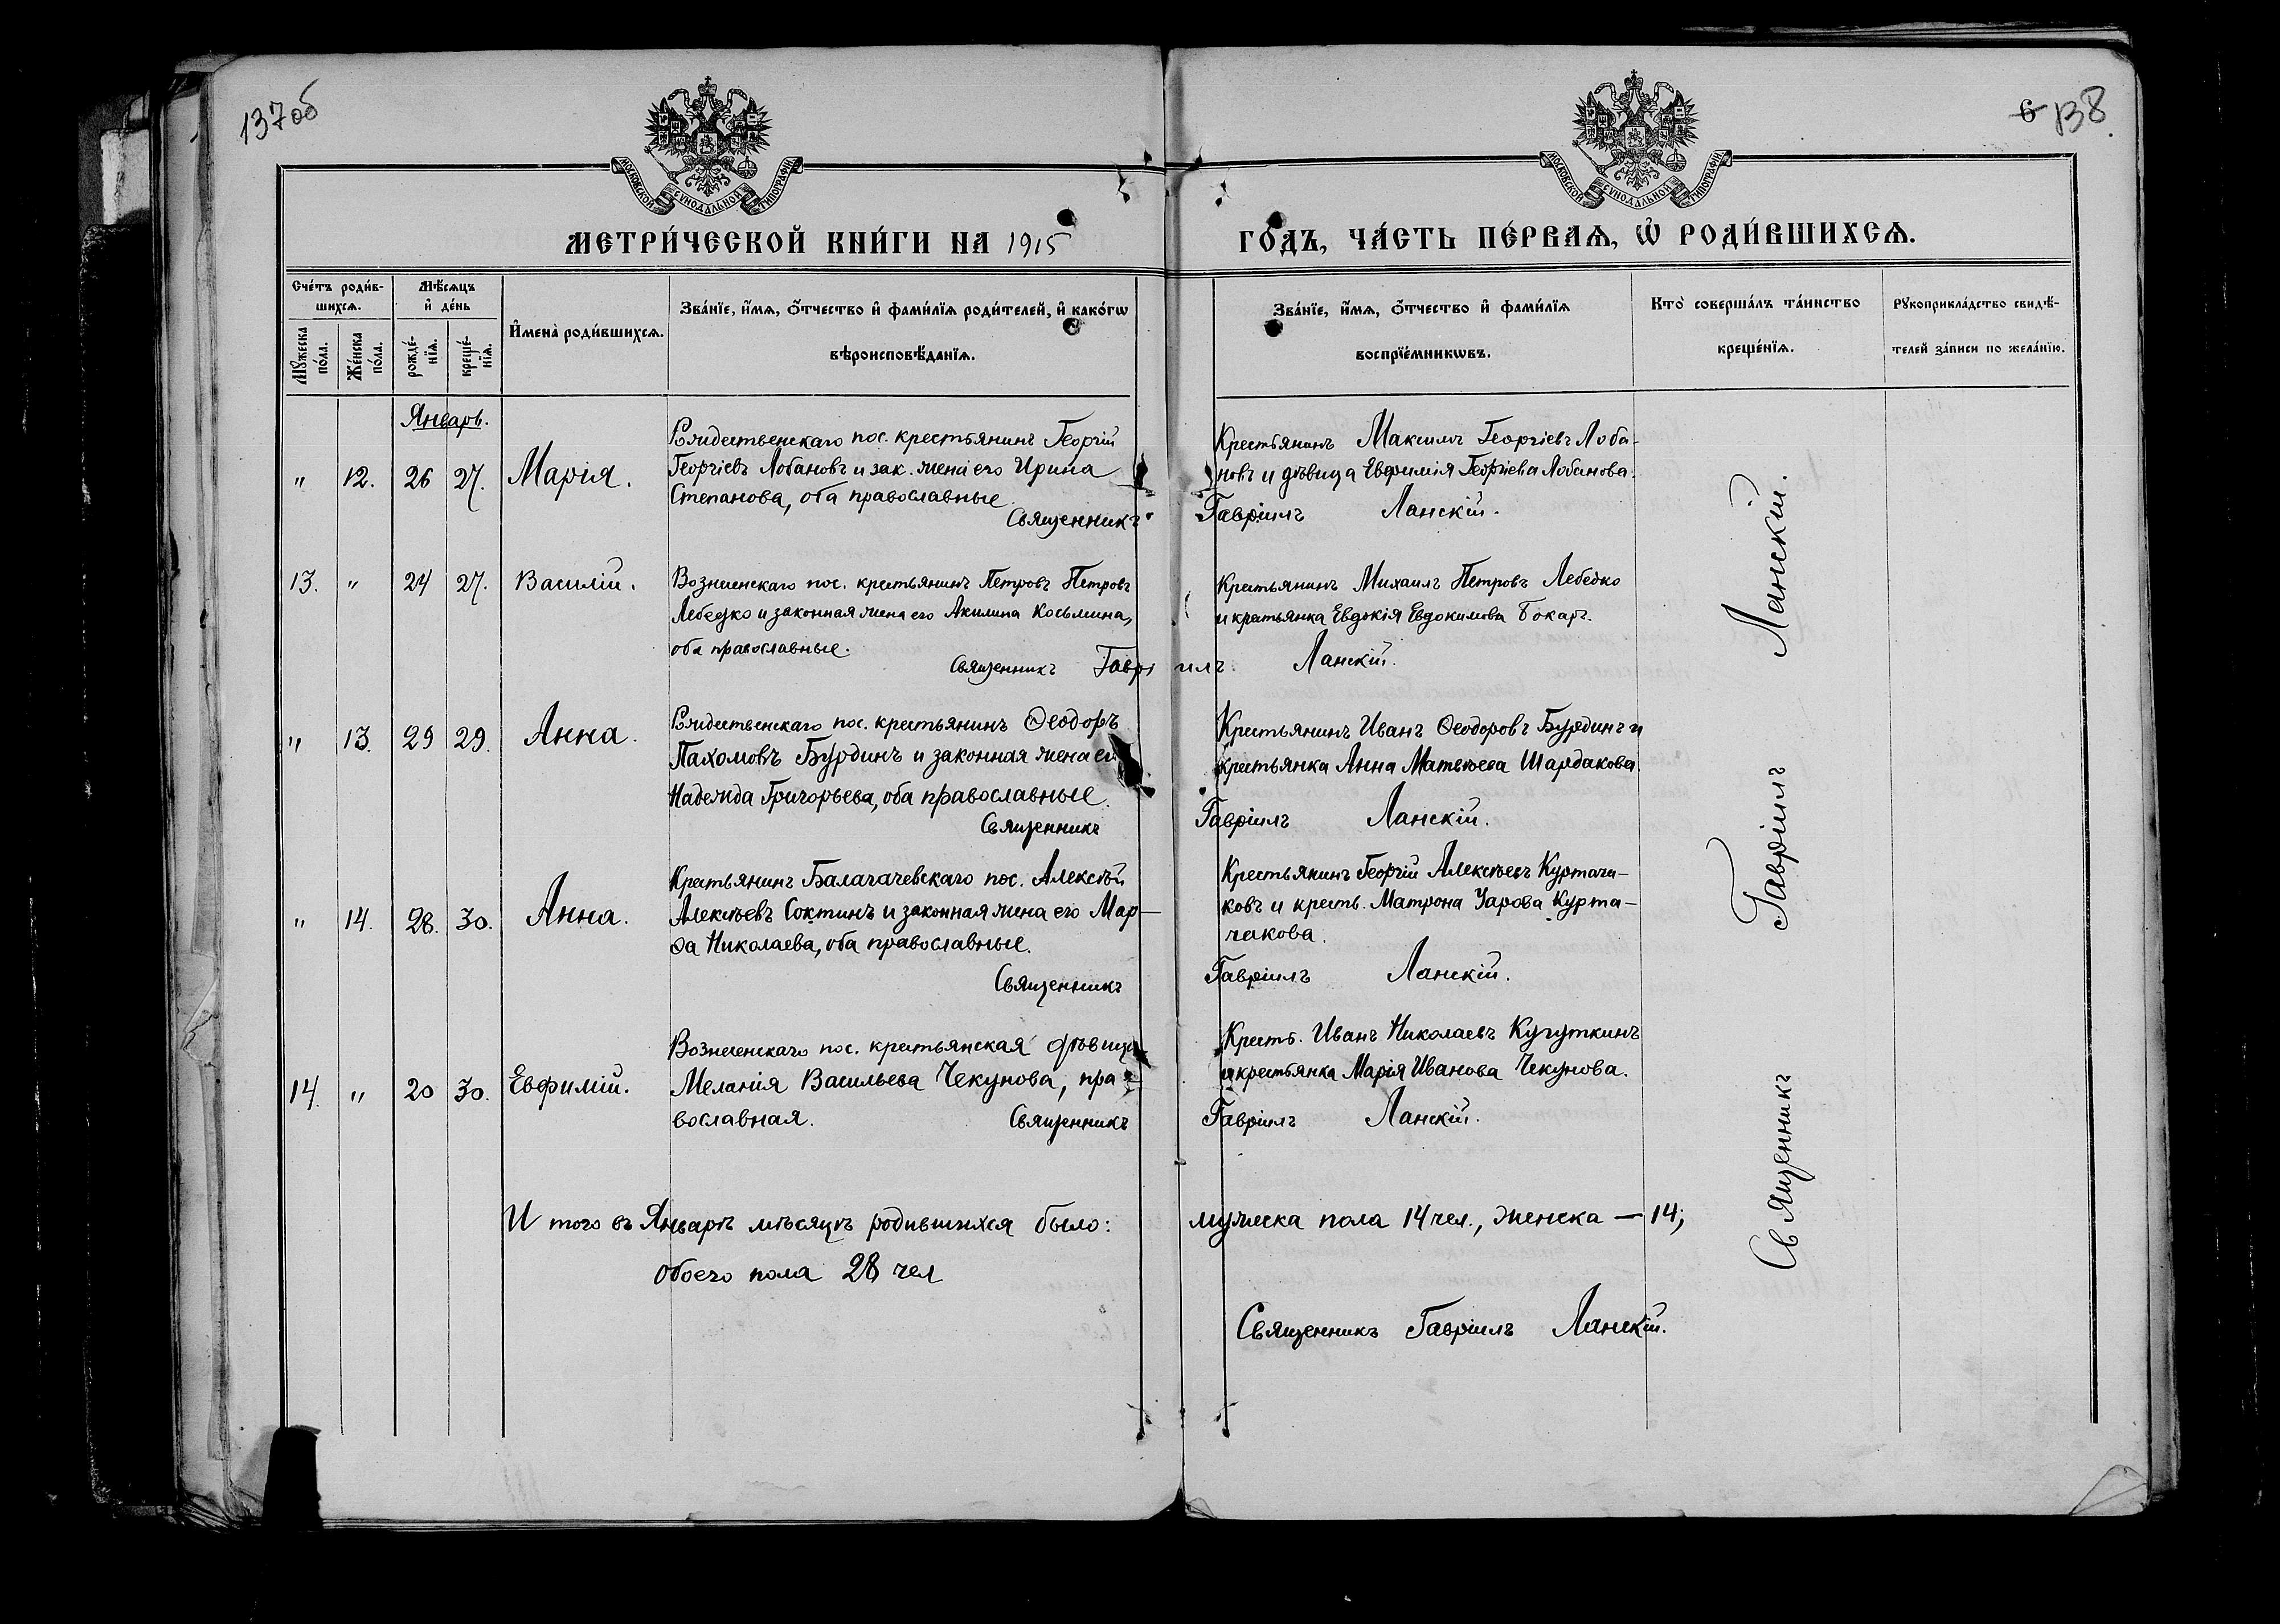 137об
6 138.
МОСКОВСКОЙ СѴНОДАЛЬНОЙ ТИПОГРАФІИ
МОСКОВСКОЙ СѴНОДАЛЬНОЙ ТИПОГРАФІИ
МЕТРИ́ЧЕСКОЙ КНИ́ГИ НА 1915
ГО́ДЪ, ЧА́СТЬ ПЕ́РВАѦ, Ѡ҆ РОДИ́ВШИХСѦ.
Сче́тъ роди́в-
шихсѧ.
Мꙋ́жеска по́ла.
Же́нска по́ла.
Мѣ́сѧцъ
и҆ де́нь
рожде́-
нїѧ.
креще́-
нїѧ.
И҆мена̀ роди́вшихсѧ.
Зва́нїе, и҆́мѧ, о҆́тчество и҆ фами́лїѧ роди́телей, и҆ како́гѡ
вѣроисповѣ́данїѧ.
Зва́нїе, и҆́мѧ, о҆́тчество и҆ фами́лїѧ
воспрїе́мникѡвъ.
Кто̀ соверша́лъ та́инство
креще́нїѧ.
Рꙋкоприкла́дство свидѣ́-
телей за́писи по жела́нїю.
Январь.
" 12. 26 27. Марія.
Рождественскаго пос. крестьянинъ Георгій
Георгіевъ Лобановъ и зак. жена его Ирина
Степанова, оба православные
Крестьянинъ Максимъ Георгіевъ Лоба-
новъ и дѣвица Евфимія Георгіева Лобанова.
Священникъ Гавріилъ Ланскій.
13. " 24 27. Василій.
Вознесенскаго пос. крестьянинъ Петровъ Петровъ
Лебедко и законная жена его Акилина Косьмина,
оба православные.
Крестьянинъ Михаилъ Петровъ Лебедко
и крестьянка Евдокія Евдокимова Бокарь.
Священникъ Гавріилъ Ланскій.
" 13. 29 29. Анна.
Рождественскаго пос. крестьянинъ Ѳеодоръ
Пахомовъ Бурдинъ и законная жена его
Надежда Григорьева, оба православные.
Крестьянинъ Иванъ Ѳеодоровъ Бурдинъ и
крестьянка Анна Матвѣева Шардакова.
Священникъ Гавріилъ Ланскій.
" 14. 28. 30. Анна.
Крестьянинъ Балагачевскаго пос. Алексѣй
Алексѣевъ Соктинъ и законная жена его Мар-
ѳа Николаева, оба православные.
Крестьянинъ Георгій Алексѣевъ Куртача-
ковъ и кресть. Матрона Уарова Курта-
чакова.
Священникъ Гавріилъ Ланскій.
14. " 20 30. Евфимій.
Вознесенскаго пос. крестьянская дѣвица
Меланія Васильева Чекунова, пра-
вославная.
Кресть. Иванъ Николаевъ Кугуткинъ
и крестьянка Марія Иванова Чекунова.
Священникъ Гавріилъ Ланскій.
И того въ Январѣ мѣсяцѣ родившихся было: мужеска пола 14 чел., женска — 14;
обоего пола 28 чел
Священникъ Гавріилъ Ланскій.
Священникъ Гавріилъ Ланскій.